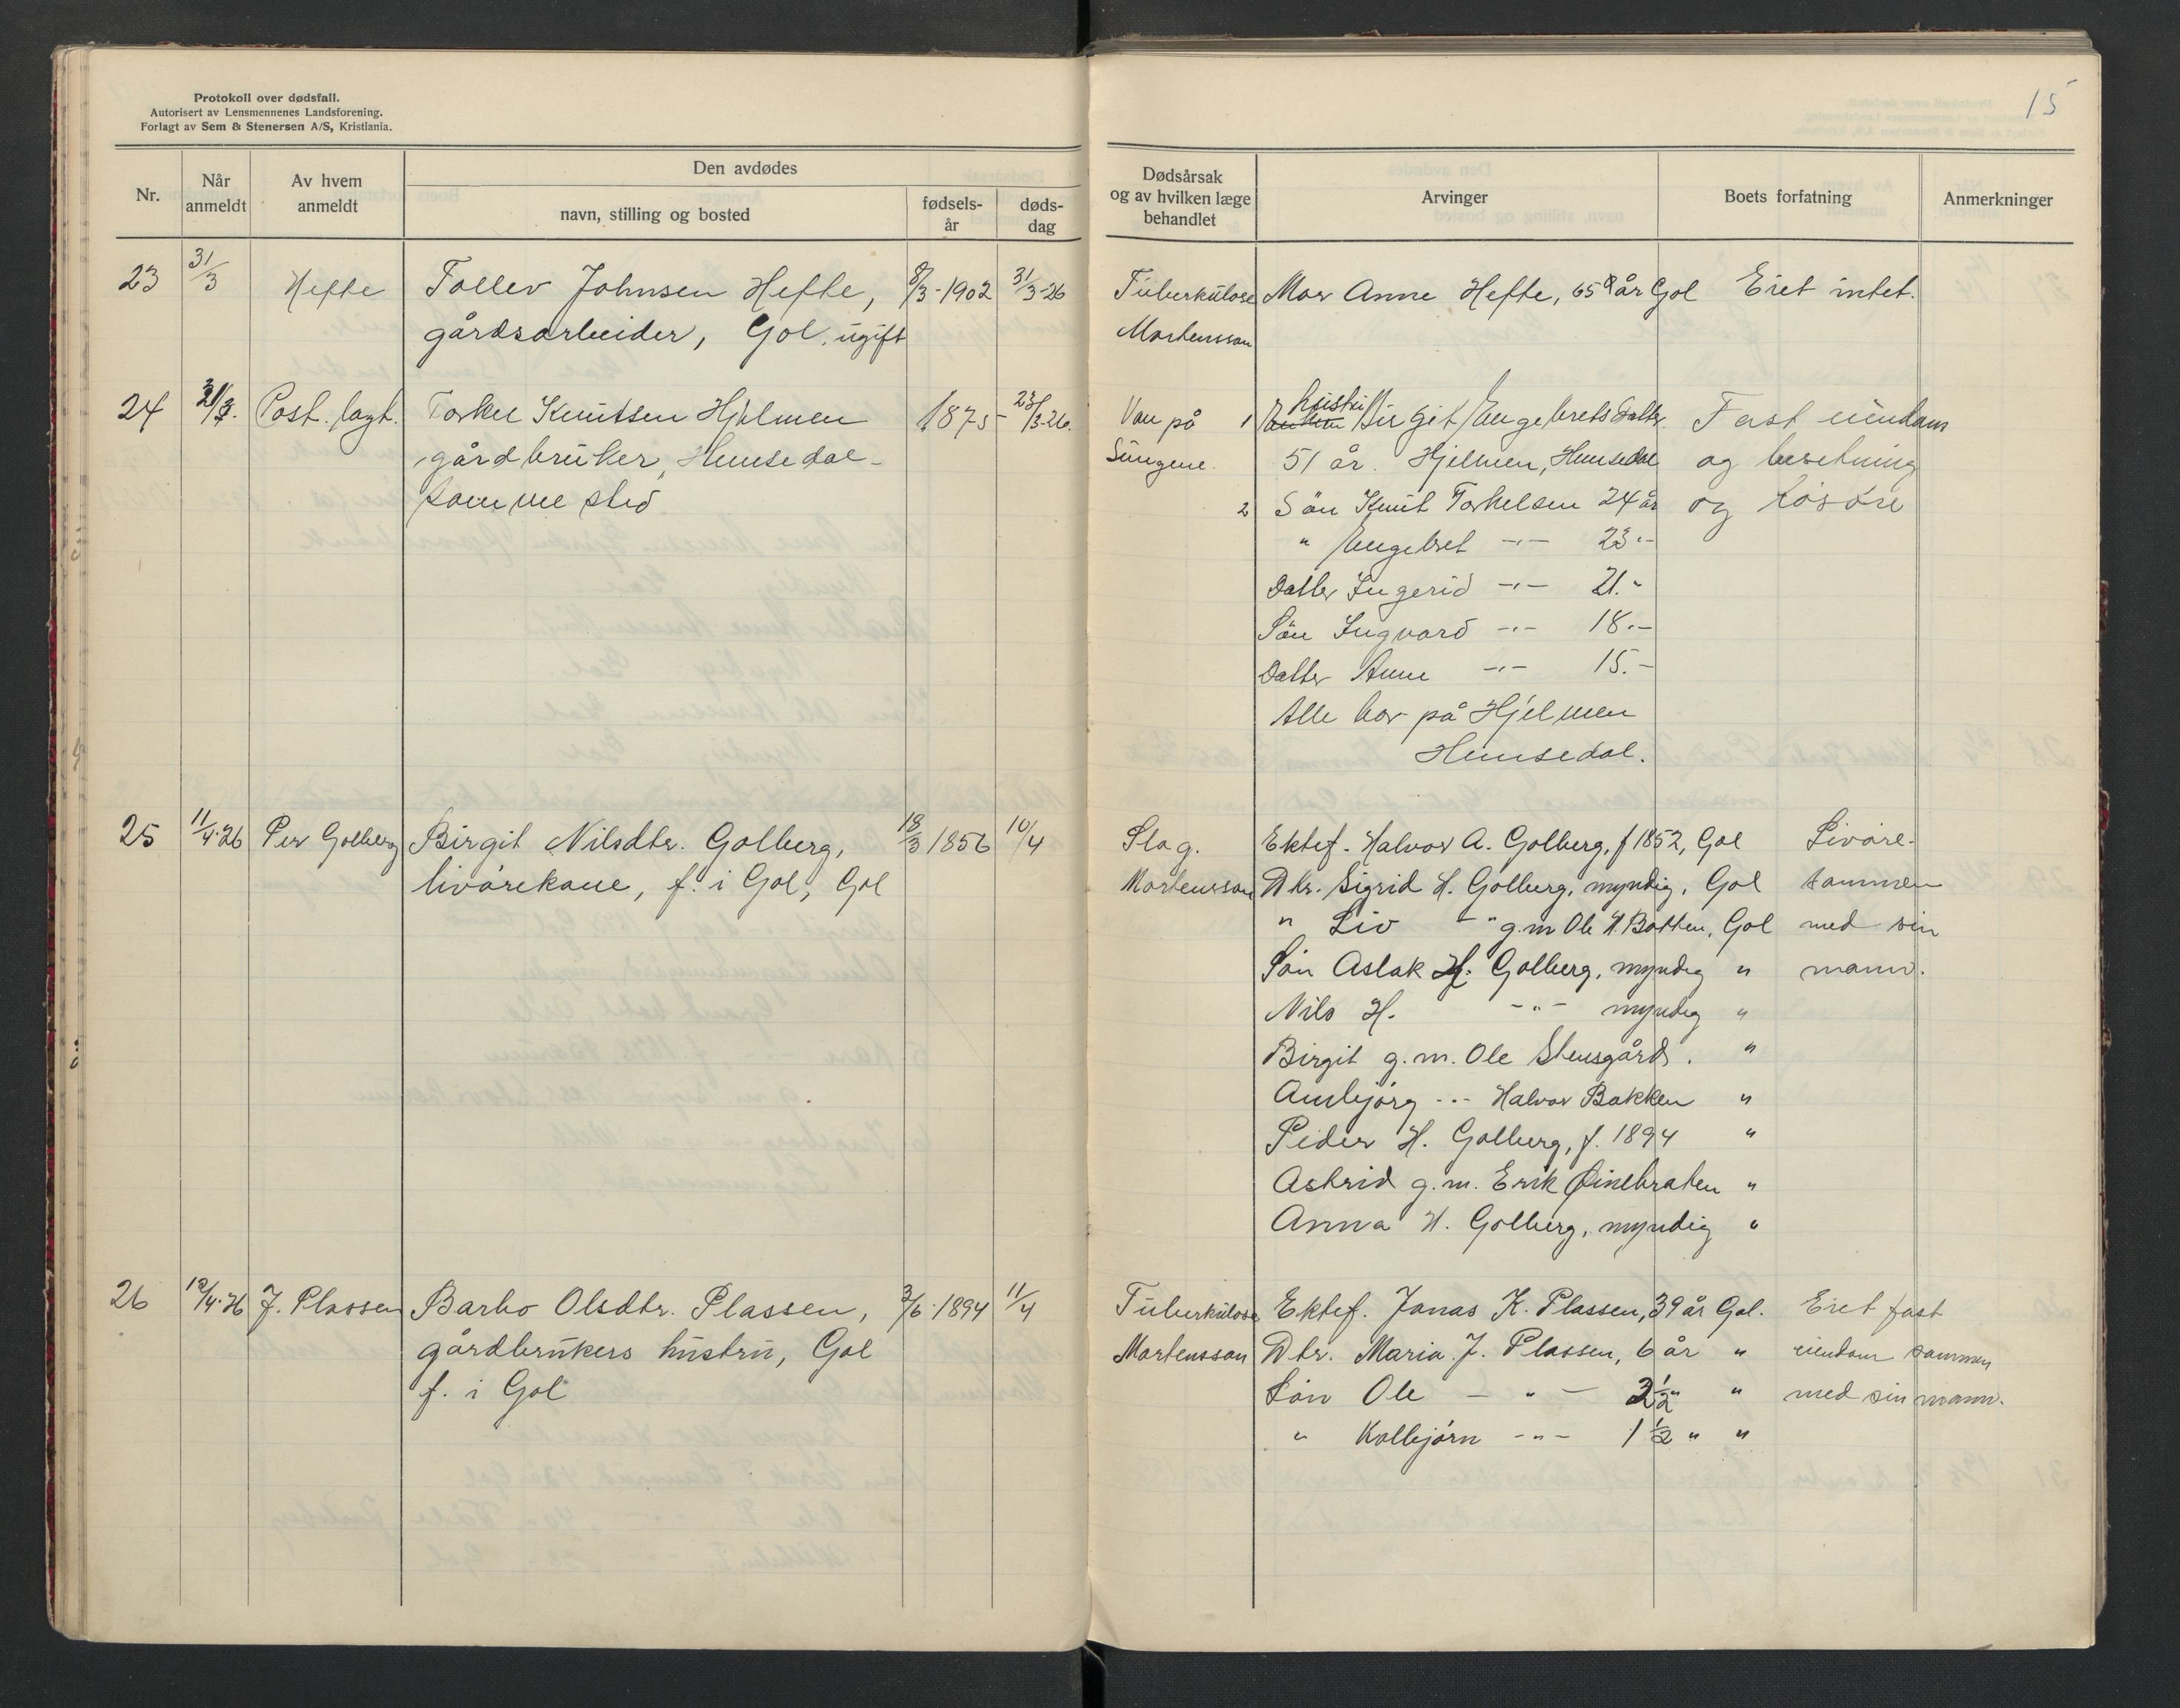 Protokoll over dødsfall.
Autorisert av Lensmennenes Landsforening.
Forlagt av Sem & Stenersen A/S, Kristiania.
15
Nr. Når anmeldt Av hvem anmeldt Den avdødes navn, stilling og bosted fødsels-år døds-dag
Dødsårsak og av hvilken læge behandlet Arvinger Boets forfatning Anmerkninger
23 31/3 Hefte Tollev Johnsen Hefte, 8/3-1902 31/3-26
gårdsarbeider, Gol, ugift
Tuberkulose Mor Anne Hefte, 65 år Gol Eiet intet.
Mortensson
24 Post. lagt. Torkel Knutsen Hjelmen 1875 23/3-26.
gårdbruker, Hemsedal
samme sted
Van på 1 Birgit Engebretsdatter Fast eiendom
Lungene. 51 år. Hjelmen, Hemsedal og besetning
2 Sön Knut Torkelsen 24 år og lösöre
" Engebret -"- 23 "-
Datter Ingerid -"- 21. "
Sön Ingvard -"- 18.-
Datter Anne -"- 15.-
Alle bor på Hjelmen
Hemsedal.
25 11/4-26 Per Golberg Birgit Nilsdtr. Golberg, 18/3 1856 10/4
livörekone, f. i Gol, Gol
Slag. Ektef. Halvor A. Golberg, f 1852, Gol Livöre-
Mortensson Dtr. Sigrid H. Golberg, myndig, Gol sammen
" Liv - " g.m Ole H. Botten, Gol med sin
Sön Aslak H. Golberg, myndig " mann.
Nils H. -"- myndig "
Birgit g.m. Ole Stensgård. "
Ambjörg -"- Halvor Bakken "
Peder H. Golberg, f. 1894 "
Astrid g.m. Erik Öinebraten "
Anna H. Golberg, myndig "
26 12/4-26 J. Plassen Barbo Olsdtr. Plassen, 3/6-1894 11/4
gårdbrukers hustru, Gol
f. i Gol
Tuberkulose Ektef. Jonas K. Plassen, 39 år Gol. Eiet fast
Mortensson Dtr. Maria J. Plassen, 6 år " eiendom sammen
Sön Ole - " - 2 1/2 " " med sin mann.
" Kolbjörn -"- 1 1/2 " "